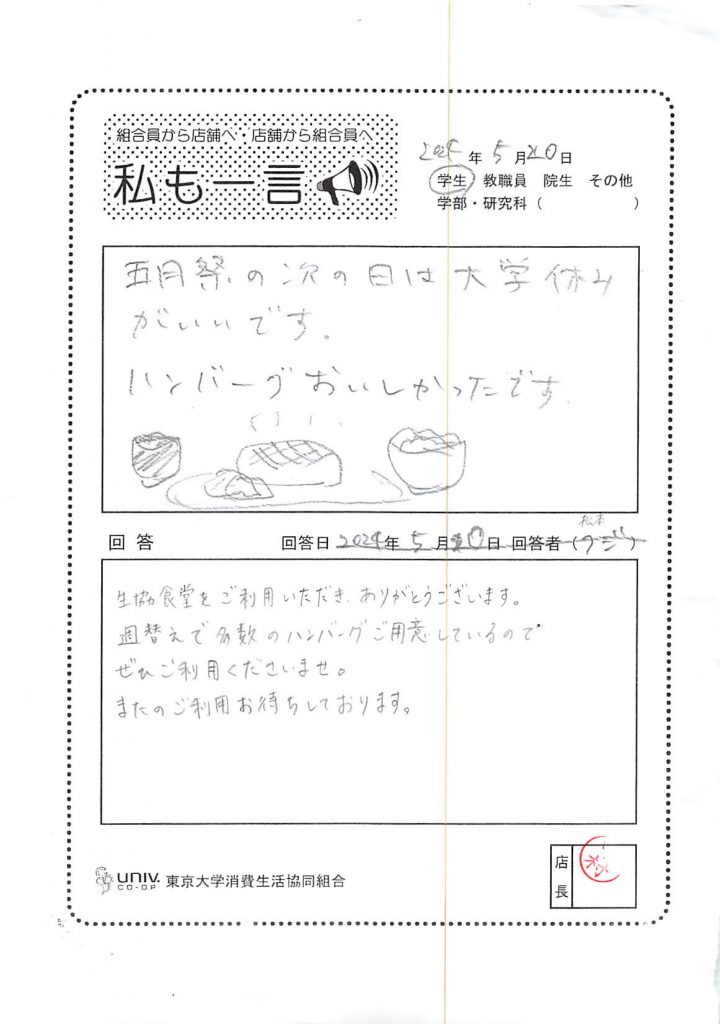 組合員から店舗へ・店舗から組合員へ
私も一言
2024年5月20日
学生 教職員 院生 その他
学部・研究科( )
五月祭の次の日は大学休み
がいいです。
ハンバーグおいしかったです。
回答 回答日 2024年5月20日 回答者( )
松本
生協食堂をご利用いただき、ありがとうございます。
週替えで多数のハンバーグご用意しているので
ぜひご利用くださいませ。
またのご利用お待ちしております。
UNIV.
CO-OP
東京大学消費生活協同組合
店長